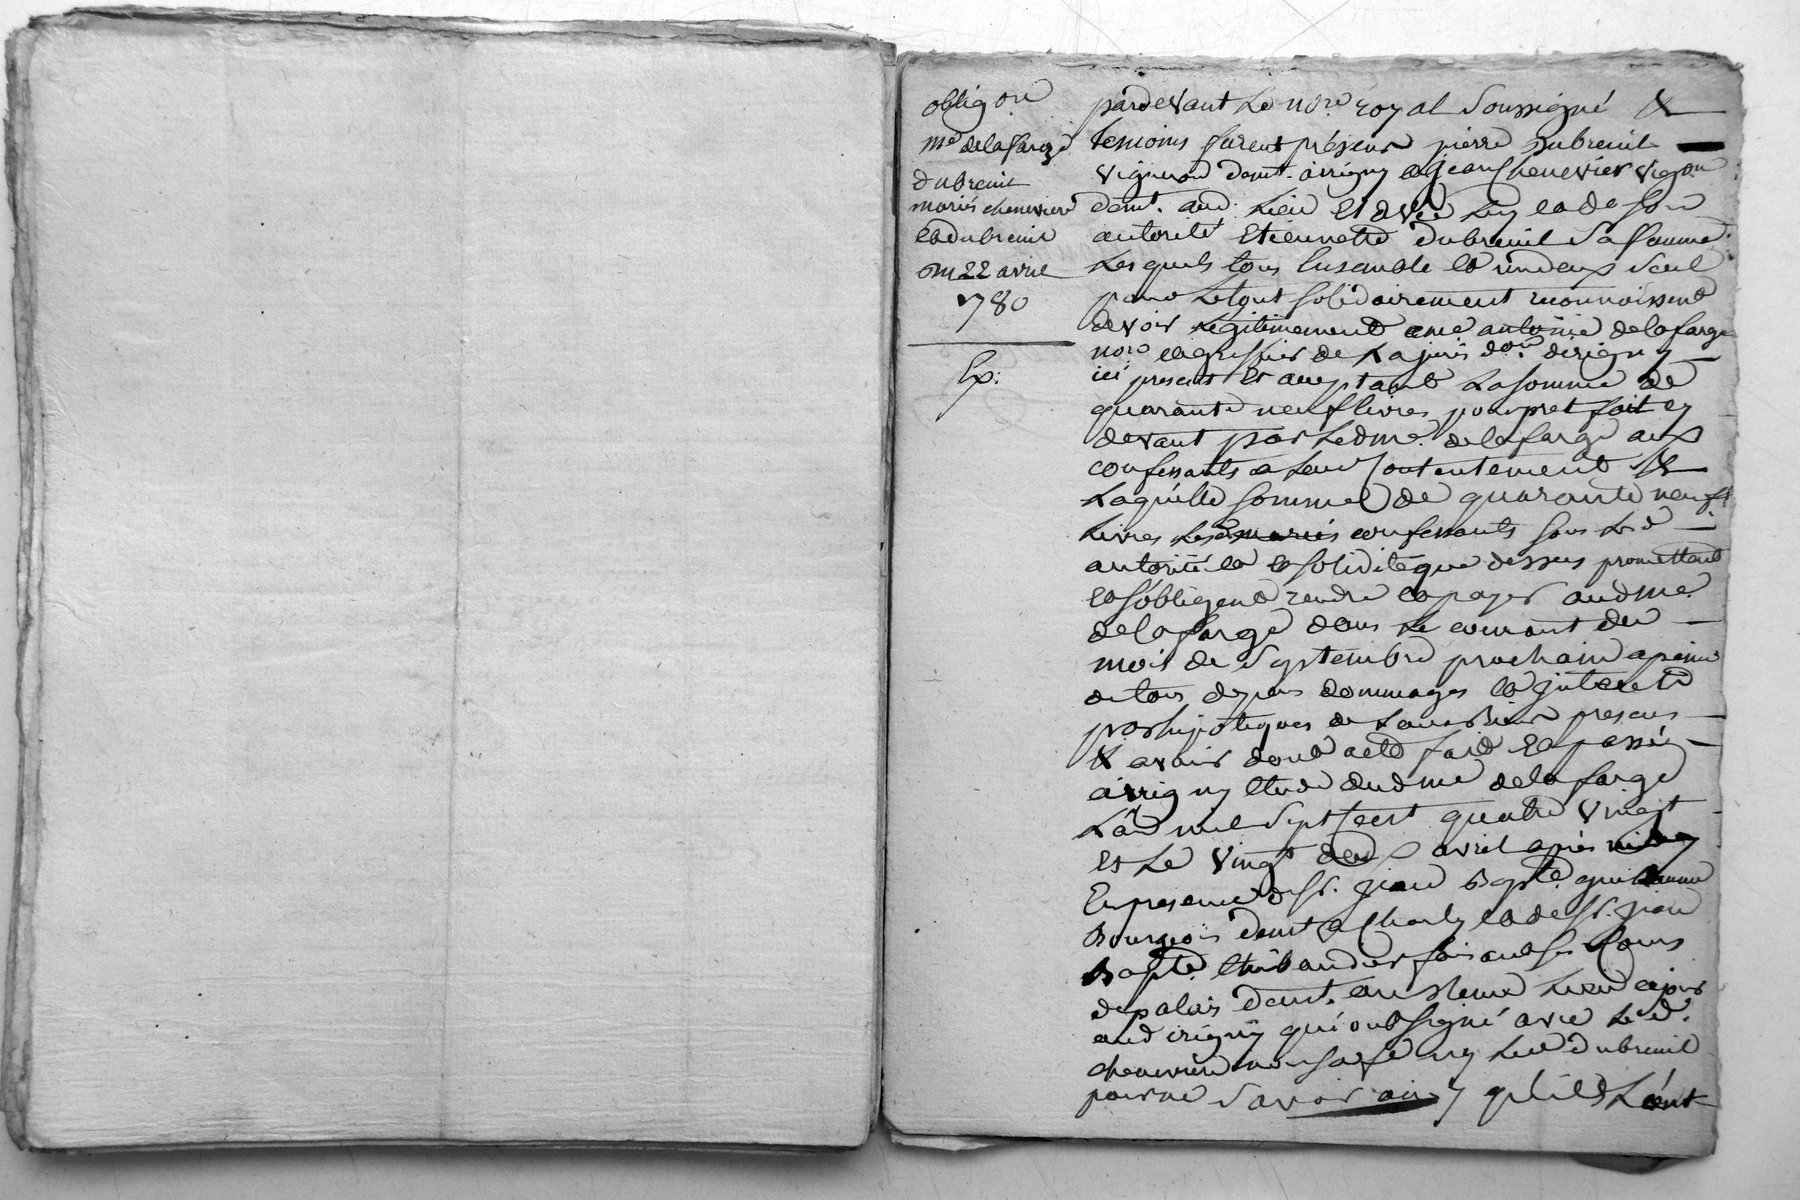 oblig.on
me delafarge
dubreuil
mariés chenevier
et dubreuil
Du 22 avril
1780
Ex:
pardevant le nore royal soussigné &
temoins furent présens pierre dubreuil
vigneron demt. airigny et jean Chenevier vigon
demt. aud. lieu et avec luy et de son
autorité etiennette dubreuil sa femme
Lesquels tous ensemble et un deux seul
pour le tout solidairement reconnoissent
devoir legitimement a me antoine delafarge
nore et greffier de la juris.don dirigny
ici present et acceptant la somme de
quarante neuf livres pour pret fait cy
devant par led me. delafarge aux
confessants a leur Contentement &
Laquelle somme de quarante neuf
Livres lesd mariés confessants sous led
autorité et solidité que dessus promettent
et s'obligent rendre et payer aud me
delafarge dans le courant du
mois de septembre prochain a peine
de tous depens dommages et jnterets
par hipoteques de leurs biens presens
& avenir dont acte fait et passé
airigny etude dud me delafarge
L'an mil sept Cent quatre vingt
et le vingt deux avril après midy
En presence de sr. jean bapte. guillaume
Bourgeois demt a Charly et de sr. jean
bapte. thibaudier faisant ses Cours
de palais demt. au meme lieu
aud irigny qui ont signé avec led.
chenevier non sa fe ny led dubreuil
pour ne savoir ainsy qu'ils L'ont